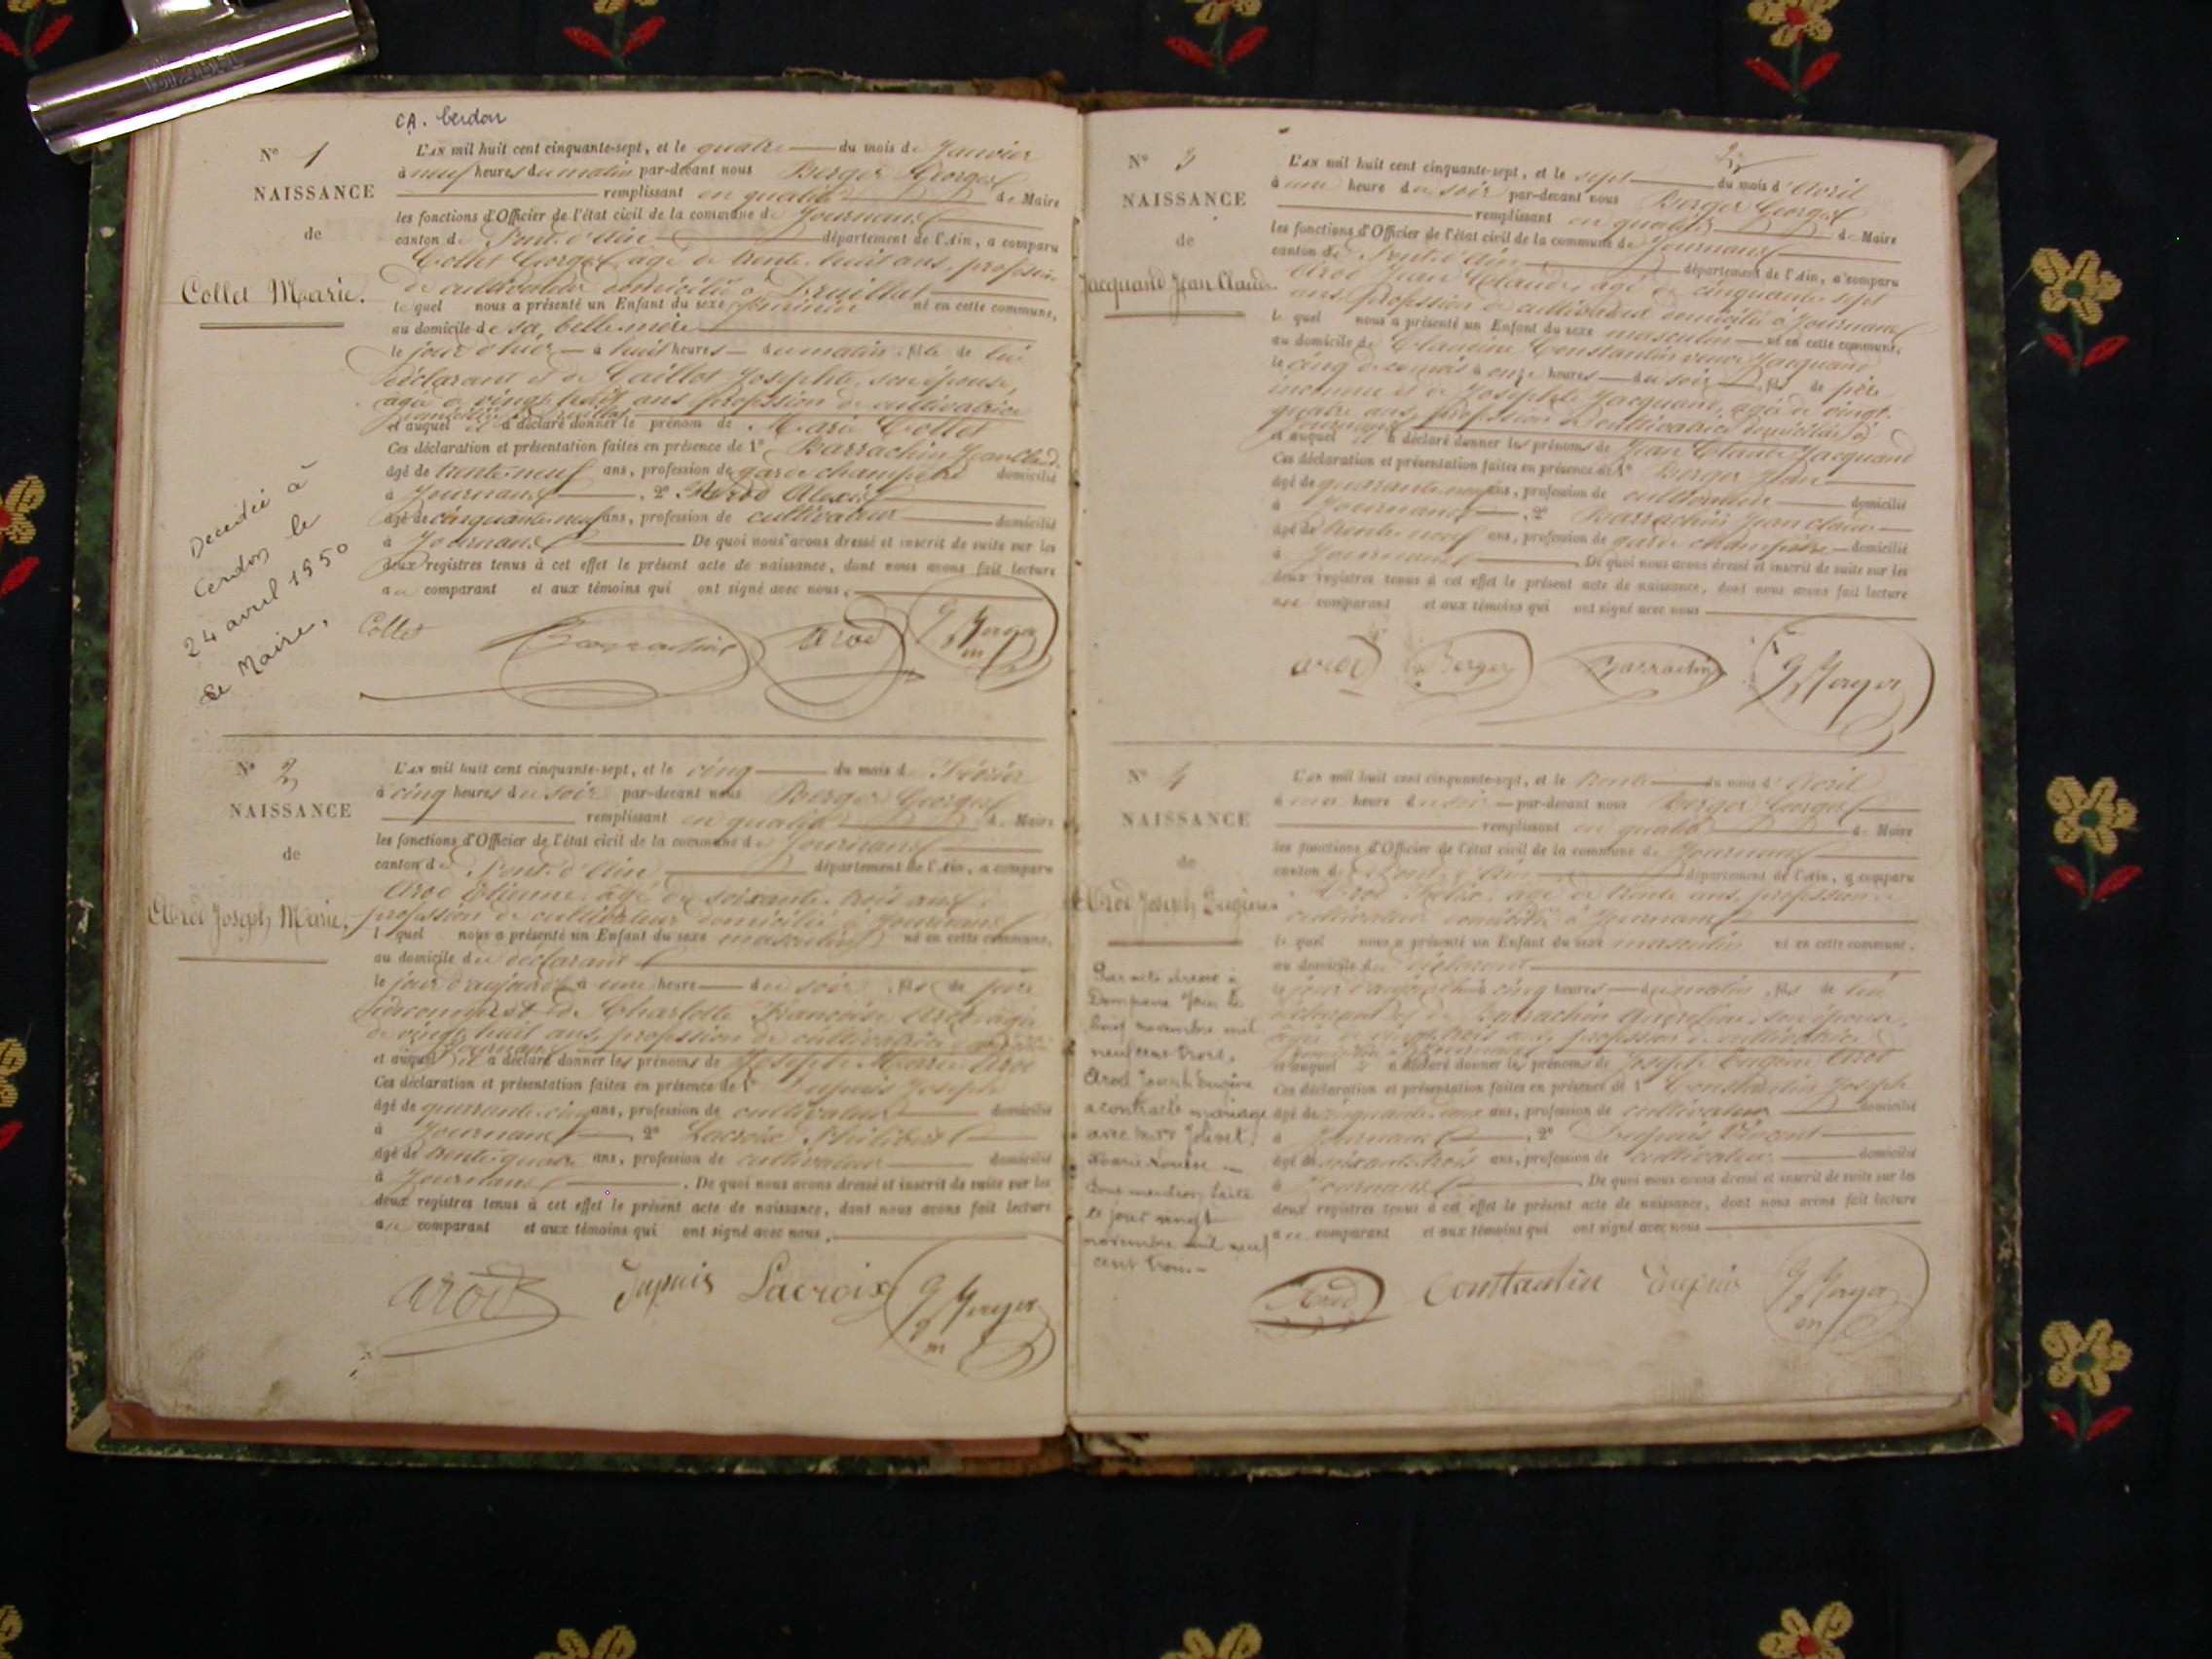 CA. Cerdon
N° 1
NAISSANCE
de
Collet Marie.
L'AN mil huit cent cinquante-sept, et le quatre du mois de Janvier
à neuf heures du matin par-devant nous Berger Georges
remplissant en qualité de Maire
les fonctions d'Officier de l'état civil de la commune de Journans
canton de Pont d'Ain département de l'Ain, a comparu
Collet Georges, agé de trente huit ans, profession
de cultivateur domicilié à Druillat
lequel nous a présenté un Enfant du sexe féminin né en cette commune,
au domicile de sa belle-mère
le jour d'hier à huit heures du matin, fille de lui
déclarant et de Caillot Josephte, son épouse,
agée de vingt huit ans profession de cultivatrice
domiciliée à Druillat
et auquel il a déclaré donner le prénom de Marie Collet
Ces déclaration et présentation faites en présence de 1° Barrachin Jean Claude
âgé de trente-neuf ans, profession de garde champêtre domicilié
à Journans, 2° Arod Alexis
âgé de cinquante-neuf ans, profession de cultivateur domicilié
à Journans De quoi nous avons dressé et inscrit de suite sur les
deux registres tenus à cet effet le présent acte de naissance, dont nous avons fait lecture
au comparant et aux témoins qui ont signé avec nous.
Collet Barrachin Arod G Berger m
Decedée à
Cerdon le
24 avril 1950
Le Maire,
N° 2
NAISSANCE
de
Arod Joseph Marie,
L'AN mil huit cent cinquante-sept, et le cinq du mois de Février
à cinq heures du soir par-devant nous Berger Georges
remplissant en qualité de Maire
les fonctions d'Officier de l'état civil de la commune de Journans
canton de Pont d'Ain département de l'Ain, a comparu
Arod Etienne, agé de soixante-trois ans,
profession de cultivateur domicilié à Journans
lequel nous a présenté un Enfant du sexe masculin né en cette commune,
au domicile du déclarant
le jour d'aujourd'hui à une heure du soir, fils de père
inconnu et de Charlotte Françoise Arod, agée
de vingt huit ans, profession de cultivatrice
Journans
et auquel il a déclaré donner les prénoms de Joseph Marie Arod
Ces déclaration et présentation faites en présence de 1° Dupuis Joseph
âgé de quarante-cinq ans, profession de cultivateur domicilié
à Journans, 2° Lacroix Philibert
âgé de trente-quatre ans, profession de cultivateur domicilié
à Journans. De quoi nous avons dressé et inscrit de suite sur les
deux registres tenus à cet effet le présent acte de naissance, dont nous avons fait lecture
au comparant et aux témoins qui ont signé avec nous.
Arod Dupuis Lacroix G Berger m
N° 3
NAISSANCE
de
Jacquand Jean Claude
L'AN mil huit cent cinquante-sept, et le sept du mois d'Avril
à une heure du soir par-devant nous Berger Georges
remplissant en qualité de Maire
les fonctions d'Officier de l'état civil de la commune de Journans
canton de Pont d'Ain département de l'Ain, a comparu
Arod Jean Claude, agé de cinquante sept
ans, profession de cultivateur domicilié à Journans
lequel nous a présenté un Enfant du sexe masculin né en cette commune,
au domicile de Claudine Constantin veuve Jacquand
le cinq de ce mois à onze heures du soir, fils de père
inconnu et de Josephte Jacquand, agée de vingt-
quatre ans, profession de cultivatrice domiciliée à
Journans
et auquel il a déclaré donner les prénoms de Jean Claude Jacquand
Ces déclaration et présentation faites en présence de 1° Berger Jean
âgé de quarante-neuf ans, profession de cultivateur domicilié
à Journans, 2° Barrachin Jean Claude
âgé de trente neuf ans, profession de garde champêtre domicilié
à Journans. De quoi nous avons dressé et inscrit de suite sur les
deux registres tenus à cet effet le présent acte de naissance, dont nous avons fait lecture
au comparant et aux témoins qui ont signé avec nous
Arod Berger Barrachin G Berger
N° 4
NAISSANCE
de
Arod Joseph Eugène
L'AN mil huit cent cinquante-sept, et le trente du mois d'Avril
à une heure du soir par-devant nous Berger Georges
remplissant en qualité de Maire
les fonctions d'Officier de l'état civil de la commune de Journans
canton de Pont d'Ain département de l'Ain, a comparu
Arod Félix, agé de trente ans, profession de
cultivateur domicilié à Journans
lequel nous a présenté un Enfant du sexe masculin né en cette commune,
au domicile du déclarant
le jour d'aujourd'hui à cinq heures du matin, fils de lui
déclarant et de Barrachin son épouse,
agée de vingt-trois ans, profession de cultivatrice
domiciliée à Journans
et auquel il a déclaré donner les prénoms de Joseph Eugène Arod
Ces déclaration et présentation faites en présence de 1° Constantin Joseph
âgé de cinquante-deux ans, profession de cultivateur domicilié
à Journans, 2° Dupuis Vincent
âgé de soixante-trois ans, profession de cultivateur domicilié
à Journans. De quoi nous avons dressé et inscrit de suite sur les
deux registres tenus à cet effet le présent acte de naissance, dont nous avons fait lecture
au comparant et aux témoins qui ont signé avec nous
Arod Constantin Dupuis G Berger m
Par acte dressé à
le
huit novembre mil
neuf cent trois,
Arod Joseph Eugène
a contracté mariage
avec Jolivet
Marie Louise
Sous mention faite
le jour vingt
novembre mil neuf
cent trois.